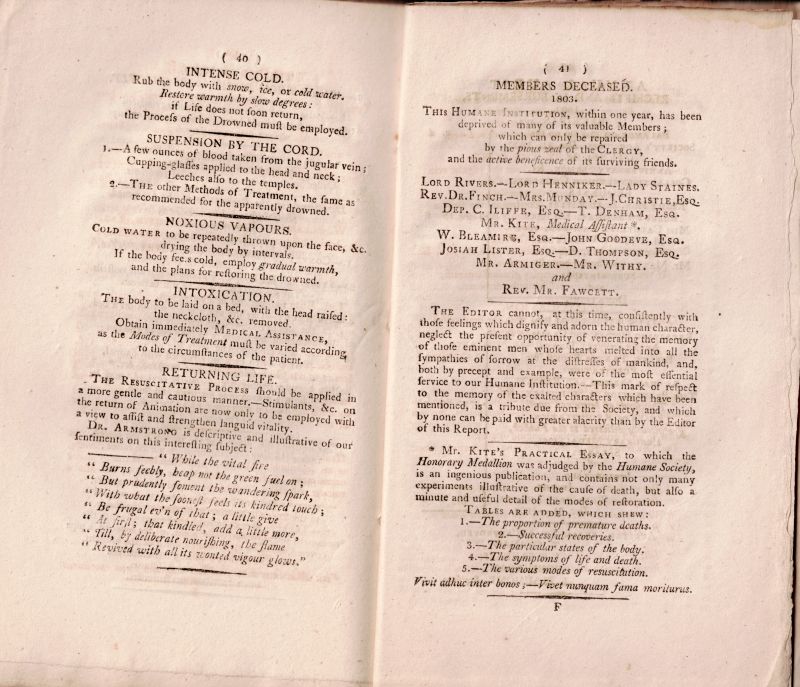 ( 40 )
INTENSE COLD.
Rub the body with snow, ice, or cold water.
Restore warmth by slow degrees:
if Life does not ſoon return,
the Proceſs of the Drowned muſt be employed.
SUSPENSION BY THE CORD.
1.—A few ounces of blood taken from the jugular vein;
Cupping-glaſſes applied to the head and neck;
Leeches alſo to the temples.
2.—THE other Methods of Treatment, the ſame as
recommended for the apparently drowned.
NOXIOUS VAPOURS.
COLD WATER to be repeatedly thrown upon the face, &c.
drying the body by intervals.
If the body feels cold, employ gradual warmth,
and the plans for reſtoring the drowned.
INTOXICATION.
THE body to be laid on a bed, with the head raiſed:
the neckcloth, &c. removed.
Obtain immediately MEDICAL ASSISTANCE,
as the Modes of Treatment muſt be varied according
to the circumſtances of the patient.
RETURNING LIFE.
THE RESUSCITATIVE PROCESS ſhould be applied in
a more gentle and cautious manner.—Stimulants, &c. on
the return of Animation are now only to be employed with
a view to aſſiſt and ſtrengthen languid vitality.
DR. ARMSTRONG is deſcriptive and illuſtrative of our
ſentiments on this intereſting ſubject:
" While the vital fire
" Burns feebly, heap not the green fuel on;
" But prudently foment the wandering ſpark,
" With what the ſooneſt feels its kindred touch;
" Be frugal ev'n of that; a little give
" At firſt; that kindled, add a little more,
" Till, by deliberate nouriſhing, the flame
" Revived with all its wonted vigour glows."
( 41 )
MEMBERS DECEASED.
1803.
THIS HUMANE INSTITUTION, within one year, has been
deprived of many of its valuable Members;
which can only be repaired
by the pious zeal of the CLERGY,
and the active beneficence of its ſurviving friends.
LORD RIVERS.—LORD HENNIKER.—LADY STAINES.
REV. DR. FINCH.—MRS. MUNDAY.—J. CHRISTIE, ESQ.
DEP. C. ILIFFE, ESQ.—T. DENHAM, ESQ.
MR. KITE, Medical Aſſiſtant *.
W. BLEAMIRE, ESQ.—JOHN GOODEVE, ESQ.
JOSIAH LISTER, ESQ.—D. THOMPSON, ESQ.
MR. ARMIGER.—MR. WITHY.
and
REV. MR. FAWCETT.
THE EDITOR cannot, at this time, conſiſtently with
thoſe feelings which dignify and adorn the human character,
neglect the preſent opportunity of venerating the memory
of thoſe eminent men whoſe hearts melted into all the
ſympathies of ſorrow at the diſtreſſes of mankind, and,
both by precept and example, were of the moſt eſſential
ſervice to our Humane Inſtitution.—This mark of reſpect
to the memory of the exalted characters which have been
mentioned, is a tribute due from the Society, and which
by none can be paid with greater alacrity than by the Editor
of this Report.
* MR. KITE'S PRACTICAL ESSAY, to which the
Honorary Medallion was adjudged by the Humane Society,
is an ingenious publication, and contains not only many
experiments illuſtrative of the cauſe of death, but alſo a
minute and uſeful detail of the modes of reſtoration.
TABLES ARE ADDED, WHICH SHEW:
1.—The proportion of premature deaths.
2.—Succeſsful recoveries.
3.—The particular states of the body.
4.—The symptoms of life and death.
5.—The various modes of resuscitation.
Vivit adhuc inter bonos;—Vivet nunquam fama moriturus.
F